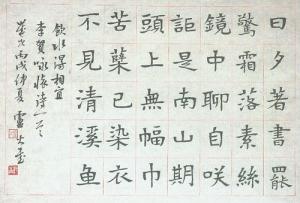 日夕著書罷
驚霜落素絲
鏡中聊自咲
詎是南山期
頭上無幅巾
苦蘗已染衣
不見清溪魚
飲水得相宜
李賀詠懷詩一首
歲次丙戌仲夏